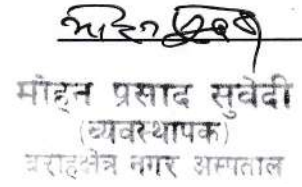 मोहन प्रसाद सुवेदी
(व्यवस्थापक)
बराहक्षेत्र नगर अस्पताल